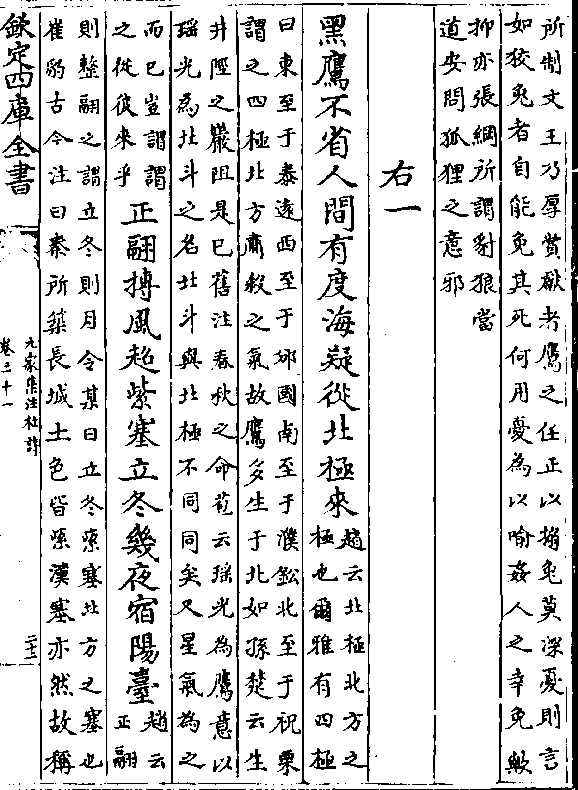 所制文王乃厚賞獻者鷹之任正以搦兔莫深憂則言
如狡兔者自能免其死何用憂為以喻姦人之幸免歟
抑亦張綱所謂豺狼當
道安問狐狸之意邪
右一
黑鷹不省人間有度海疑從北極來
趙云北極北方之
極也爾雅有四極
曰東至于泰逺西至于邠國南至于濮鈆北至于祝栗
謂之四極北方肅殺之氣故鷹多生于北如孫楚云生
井陘之巖阻是已舊注春秋之命苞云瑶光為鷹意以
瑶光為北斗之名北斗與北極不同同矣又星氣為之
而已豈謂謂
之從彼来乎
正翮摶風超紫塞立冬幾夜宿陽臺
趙云
正翮
則整翮之謂立冬則月令某日立冬紫塞北方之塞也
崔豹古今注曰秦所築長城土色皆紫漢塞亦然故稱
欽定四庫全書
九家集注杜詩
卷三十一
二十三